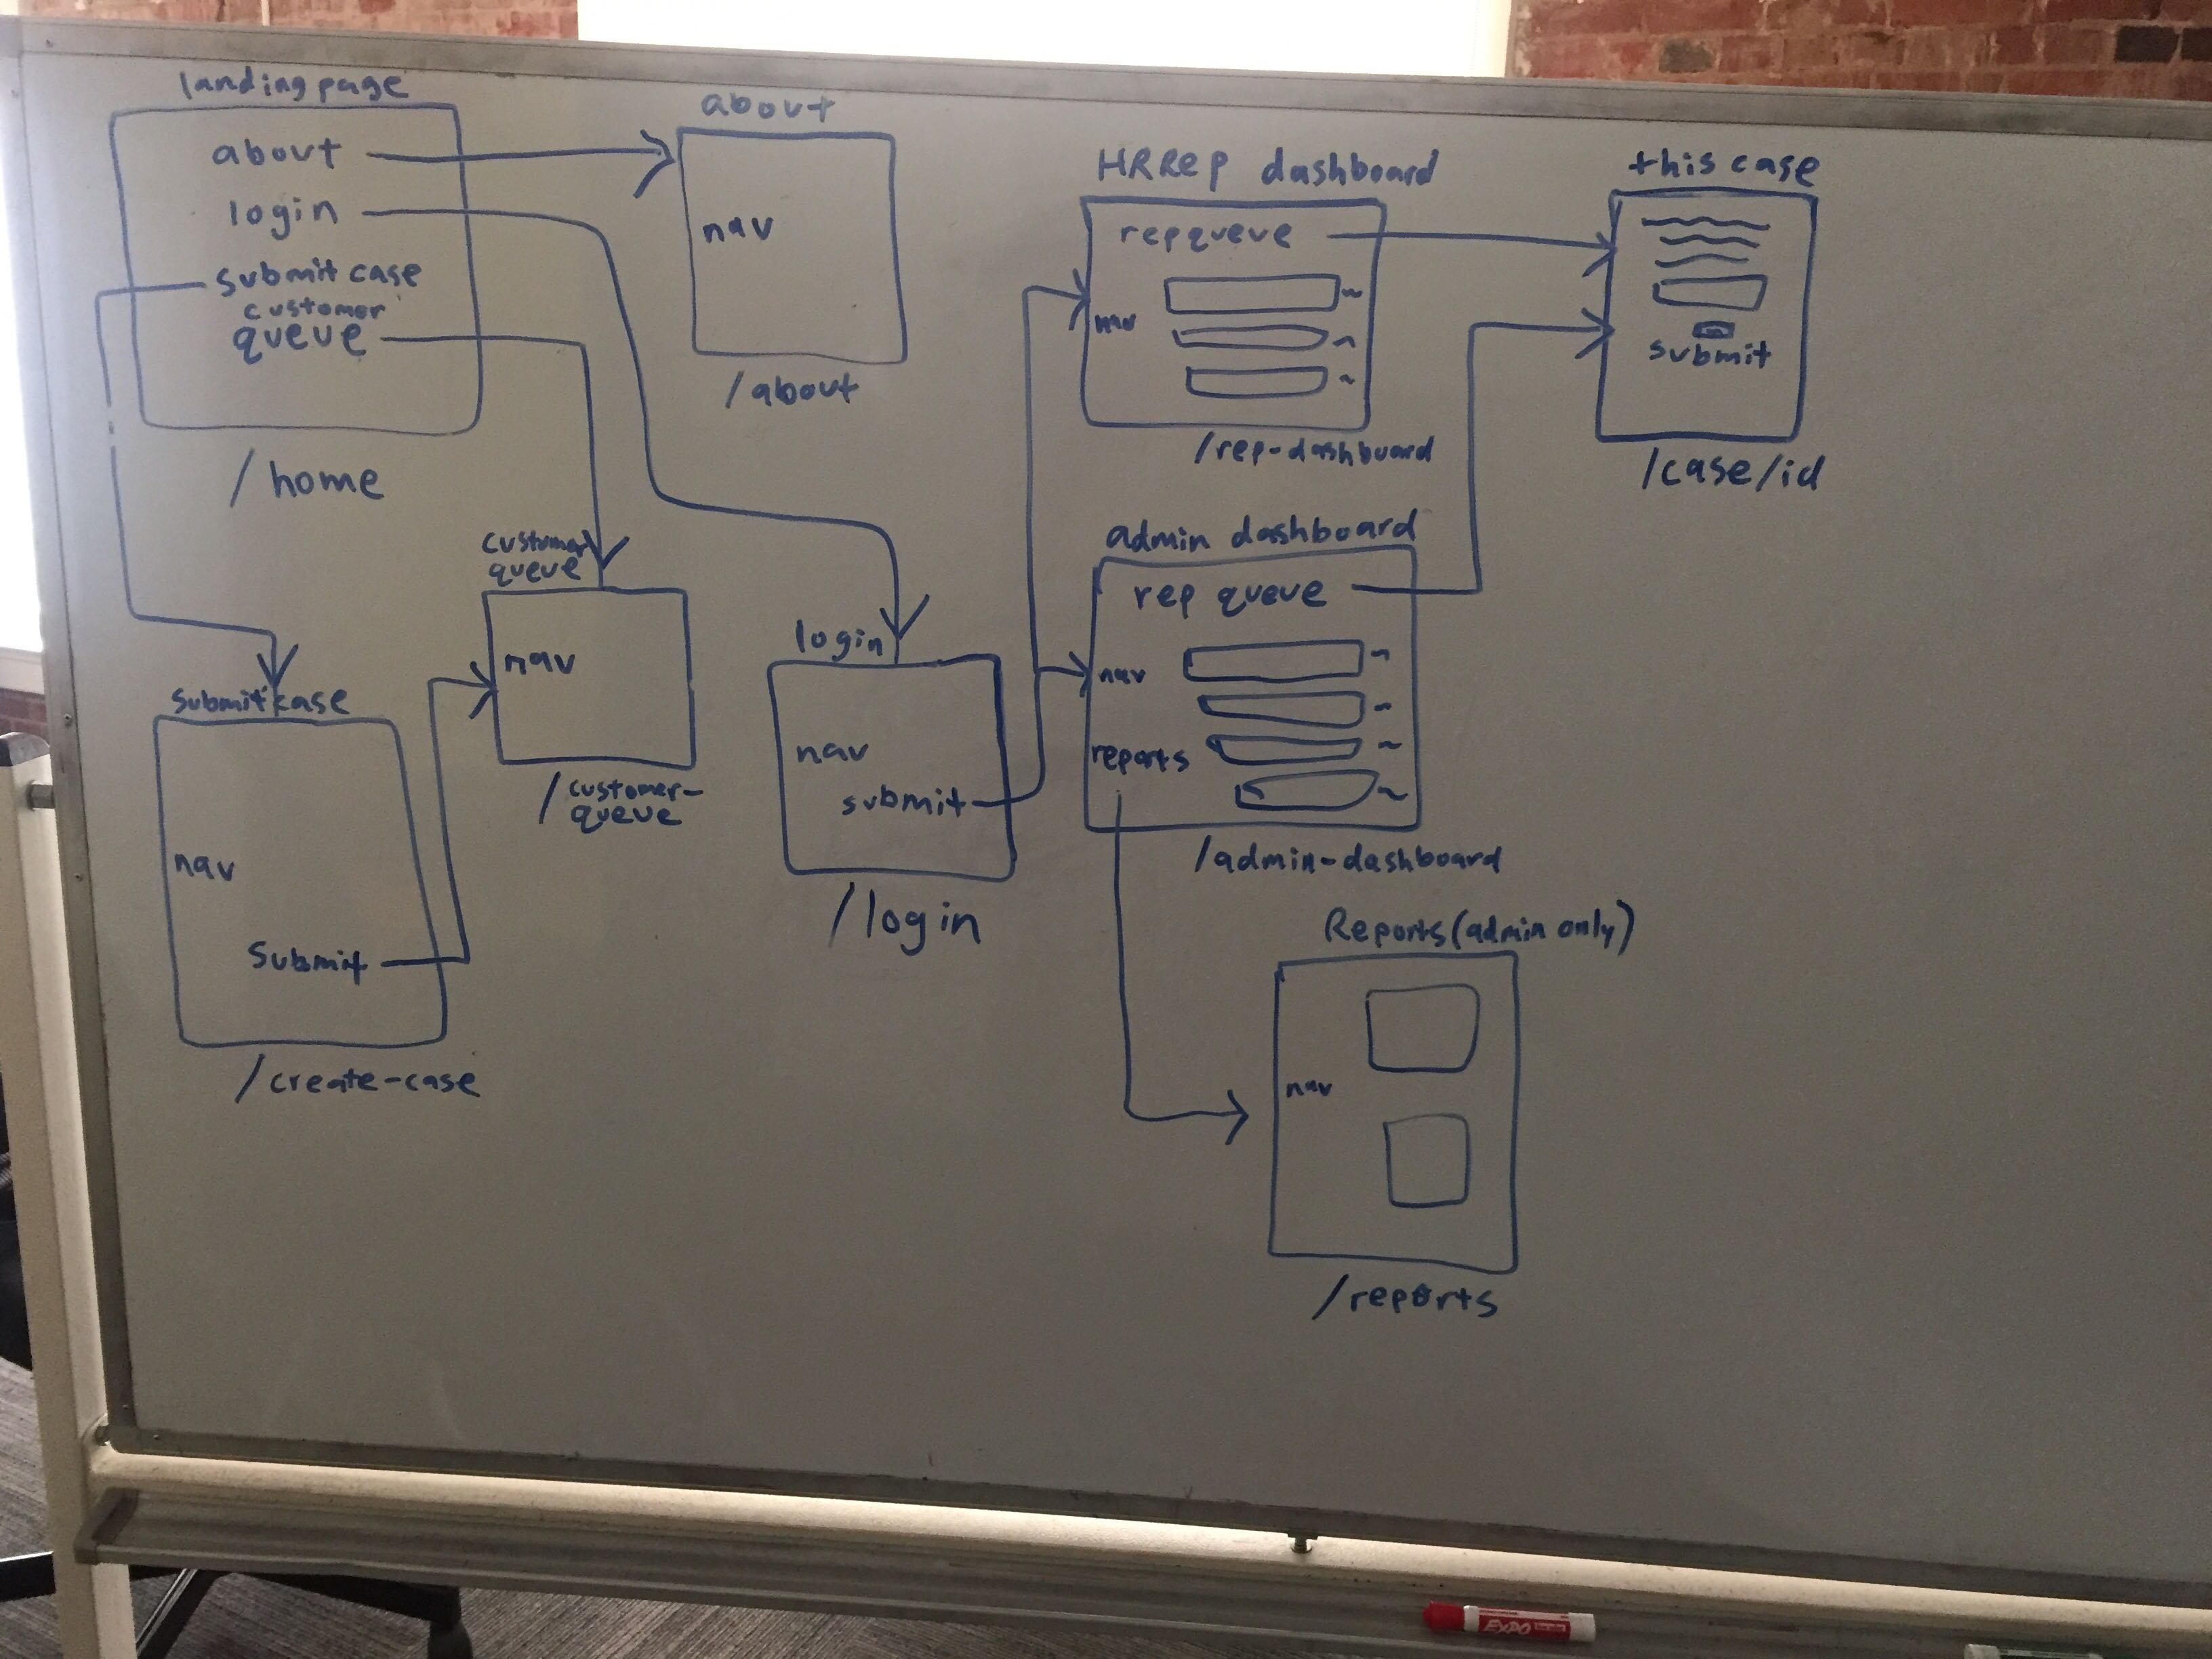 landing page
about
login
submit case
customer
queue
/home
about
nav
/about
HRRep dashboard
repqueue
nav
/rep-dashboard
this case
submit
/case/id
customer
queue
nav
/customer-
queue
submit case
nav
submit
/create-case
login
nav
submit
/login
admin dashboard
rep queue
nav
reports
/admin-dashboard
Reports(admin only)
nav
/reports
EXPO